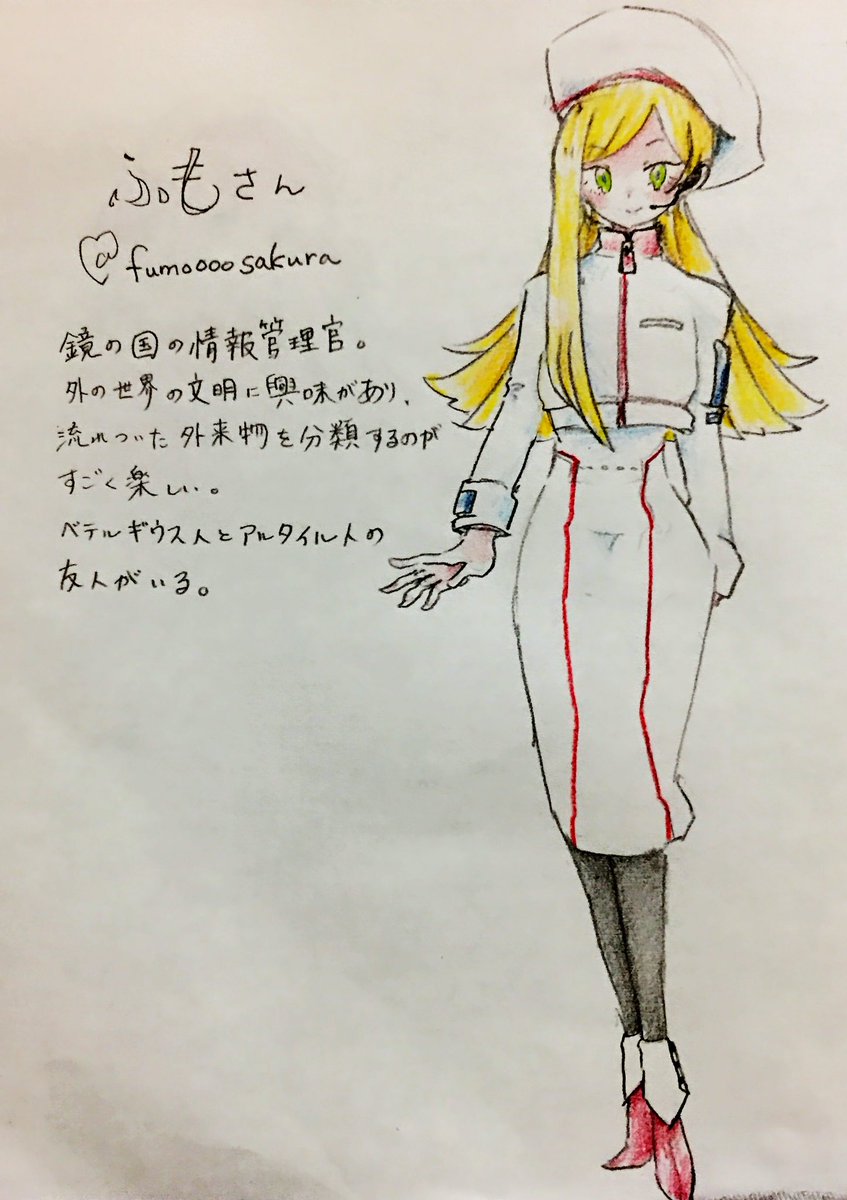 ふもさん
@fumoooosakura
鏡の国の情報管理官。
外の世界の文明に興味があり、
流れついた外来物を分類するのが
すごく楽しい。
ベテルギウス人とアルタイル人の
友人がいる。